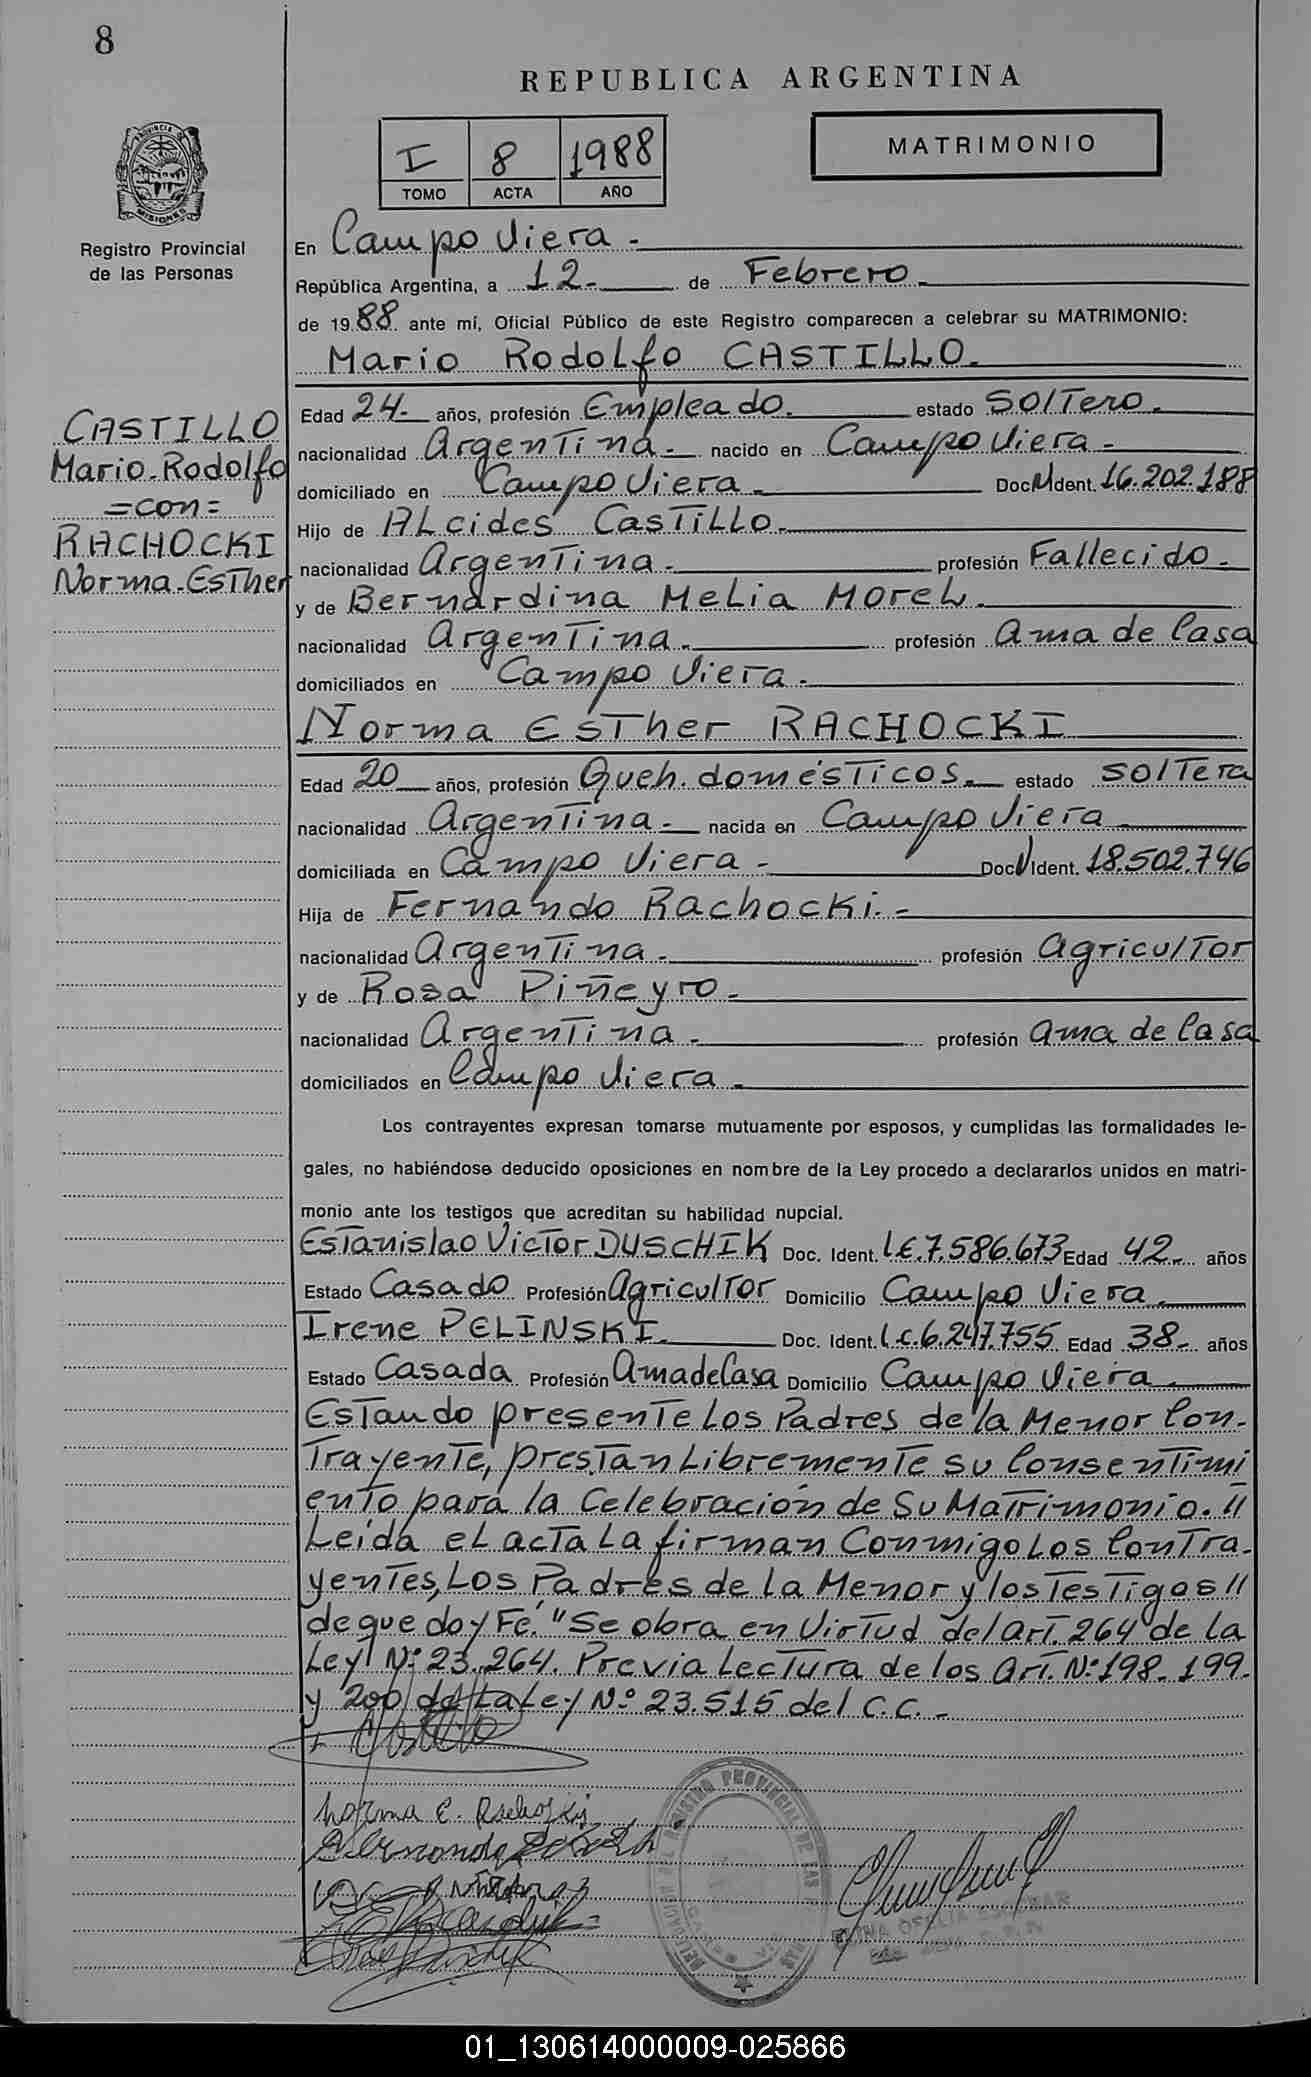 8
REPUBLICA ARGENTINA
I 8 1988
TOMO ACTA AÑO
MATRIMONIO
PROVINCIA DE MISIONES
Registro Provincial
de las Personas
CASTILLO
Mario Rodolfo
=con=
RACHOCKI
Norma Esther
En Campo Viera.-
República Argentina, a 12- de Febrero
de 1988 ante mí, Oficial Público de este Registro comparecen a celebrar su MATRIMONIO:
Mario Rodolfo CASTILLO.
Edad 24- años, profesión Empleado. estado Soltero.
nacionalidad Argentina.- nacido en Campo Viera-
domiciliado en Campo Viera.- Doc N Ident. 16.202.188
Hijo de ALcides Castillo.-
nacionalidad Argentina.- profesión Fallecido.-
y de Bernardina Melia Morel.
nacionalidad Argentina.- profesión ama de Casa
domiciliados en Campo Viera.-
Norma Esther RACHOCKI
Edad 20 años, profesión Queh. domésticos.- estado soltera
nacionalidad Argentina.- nacida en Campo Viera
domiciliada en Campo Viera- Doc N Ident. 18.502.746
Hija de Fernando Rachocki.-
nacionalidad Argentina.- profesión agricultor
y de Rosa Piñeyro-
nacionalidad Argentina.- profesión ama de Casa
domiciliados en Campo Viera.-
Los contrayentes expresan tomarse mutuamente por esposos, y cumplidas las formalidades le-
gales, no habiéndose deducido oposiciones en nombre de la Ley procedo a declararlos unidos en matri-
monio ante los testigos que acreditan su habilidad nupcial.
Estanislao Victor DUSCHIK Doc. Ident. L.E.7.586.673 Edad 42- años
Estado Casado Profesión agricultor Domicilio Campo Viera
Irene PELINSKI. Doc. Ident. L.C.6.247.755 Edad 38- años
Estado Casada Profesión ama de Casa Domicilio Campo Viera
Estando presente Los Padres de la Menor Con-
trayente, prestan Libremente su Consentimi
ento para la Celebración de Su Matrimonio.//
Leída el acta La firman Conmigo Los Contra-
yentes, Los Padres de la Menor y los testigos//
de que doy Fé. "Se obra en Virtud del art. 264 de la
Ley Nº 23.264. Previa Lectura de los art. Nº 198. 199.
y 200 de La Ley Nº 23.515 del C.C.-
Castillo
Norma E. Rachocki
REGISTRO PROVINCIAL DE LAS
OFELIA ESCOBAR
01_130614000009-025866